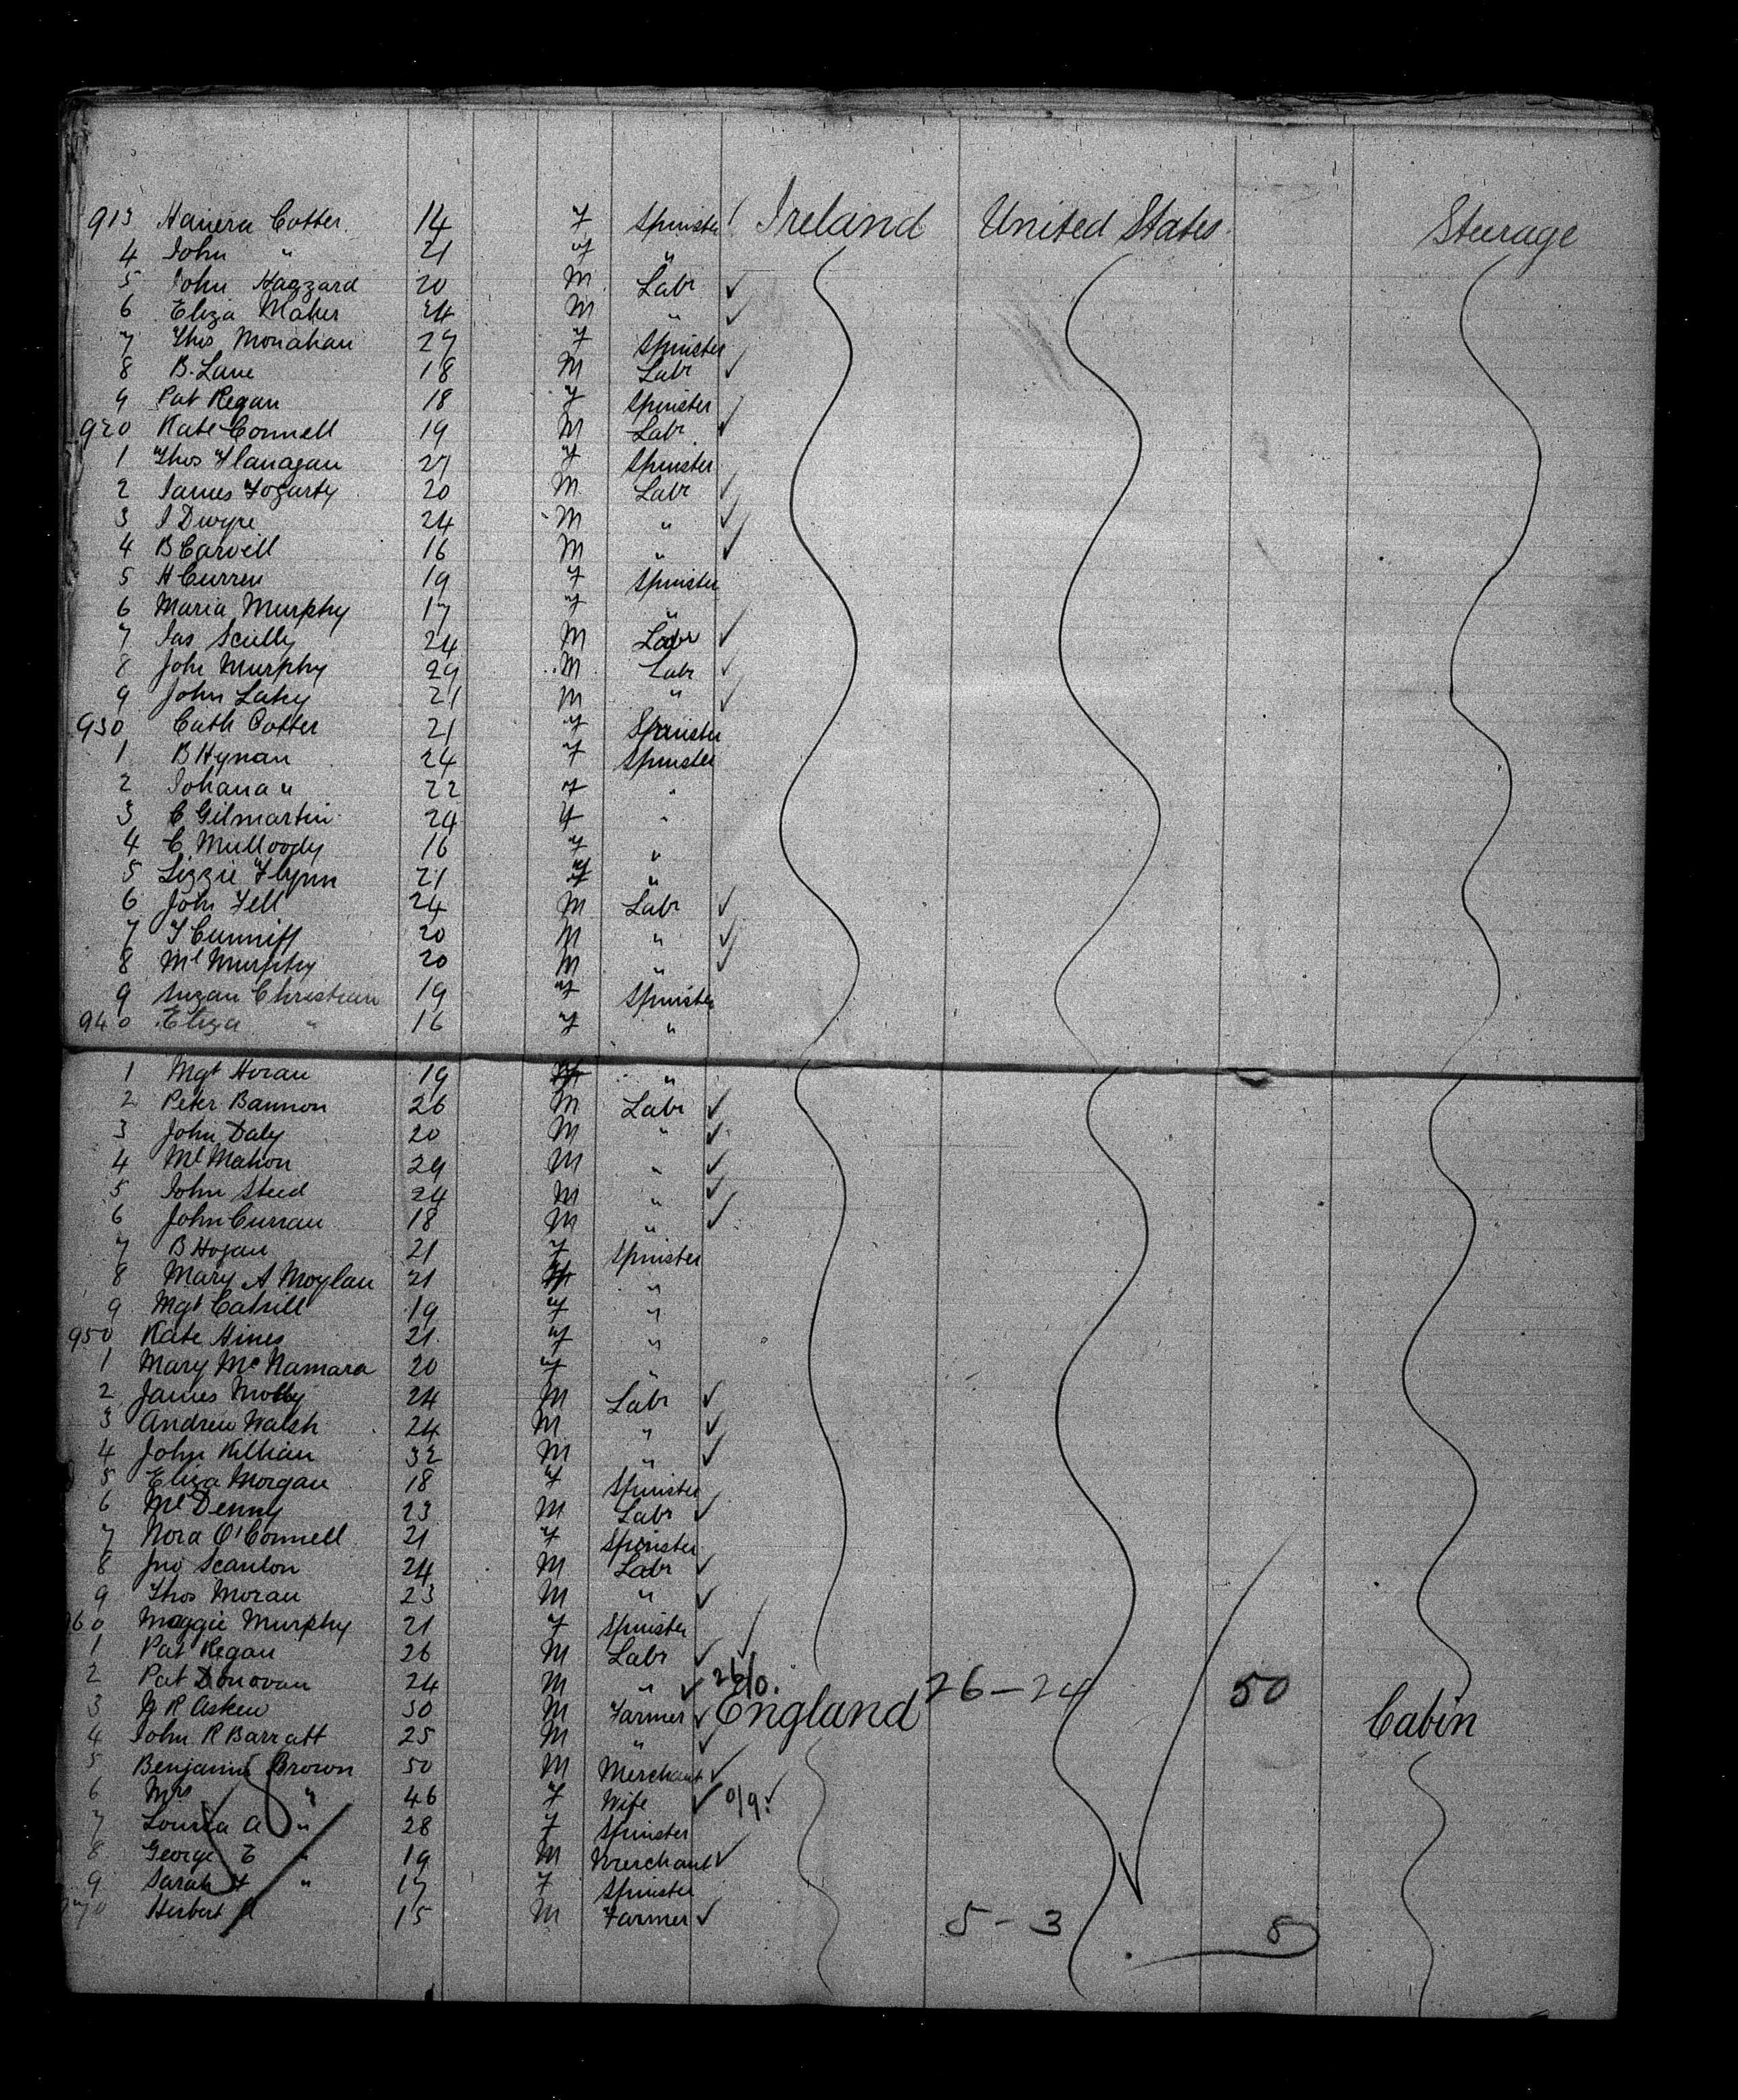 913 Hanera Cotter 14 f Spinster Ireland United States Steerage
4 John " 21 f "
5 John Haggard 20 M Labr ✓
6 Eliza Maher 24 M " ✓
7 Thos Monahan 27 f Spinster
8 B. Lane 18 M Labr ✓
9 Pat Regan 18 f Spinster
920 Kate Connell 19 M Labr ✓
1 Thos Flanagan 27 f Spinster
2 James Fogarty 20 M Labr ✓
3 J Dwyre 24 M " ✓
4 B Carvill 16 M " ✓
5 H Curren 19 f Spinster
6 Maria Murphy 17 f "
7 Jas Scully 24 M Labr ✓
8 John Murphy 29 M Labr ✓
9 John Lahy 21 M " ✓
930 Cath Cotter 21 f Spinster
1 B Hynan 24 f Spinster
2 Johana " 22 f "
3 C Gilmartin 24 f "
4 C. Mulloody 16 f "
5 Lizzie Flynn 21 f "
6 John Fell 24 M Labr ✓
7 T Cunniff 20 M " ✓
8 Ml Murphy 20 M " ✓
9 Suzan Christian 19 f Spinster
940 Eliza " 16 f "
1 Mgt Horan 19 "
2 Peter Bannon 26 M Labr ✓
3 John Daly 20 M " ✓
4 Ml Mahon 29 M " ✓
5 John Steed 24 M " ✓
6 John Curran 18 M " ✓
7 B Hogan 21 f Spinster
8 Mary A Moylan 21 "
9 Mgt Cahill 19 f "
950 Kate Hines 21 f "
1 Mary McNamara 20 f "
2 James Molly 24 M Labr ✓
3 Andrew Walsh 24 M " ✓
4 John Killian 32 M " ✓
5 Eliza Morgan 18 f Spinster
6 Ml Denny 23 M Labr ✓
7 Nora O'Connell 21 f Spinster
8 Jno Scanlon 24 M Labr ✓
9 Thos Moran 23 M " ✓
960 Maggie Murphy 21 f Spinster
1 Pat Regan 26 M Labr ✓
2 Pat Donovan 24 M " ✓ 26-24 50
3 R Askew 50 M Farmer ✓ England Cabin
4 John R Barratt 25 M " ✓
5 Benjamin Brown 50 M Merchant ✓
6 Mrs " 46 f Wife ✓ 0/9 ✓
7 Louisa A " 28 f Spinster
8 George E " 19 M Merchant ✓
9 Sarah H " 17 f Spinster
970 Herbert A 15 M Farmer ✓ 5-3 8